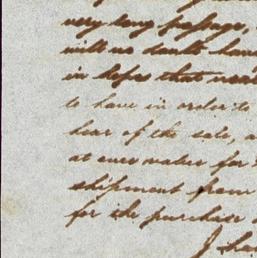 very long passage,
will no doubt have
in hopes that
to have in order to
hear of the sale, a
at once make for
shipment from
for the purchase
I ha